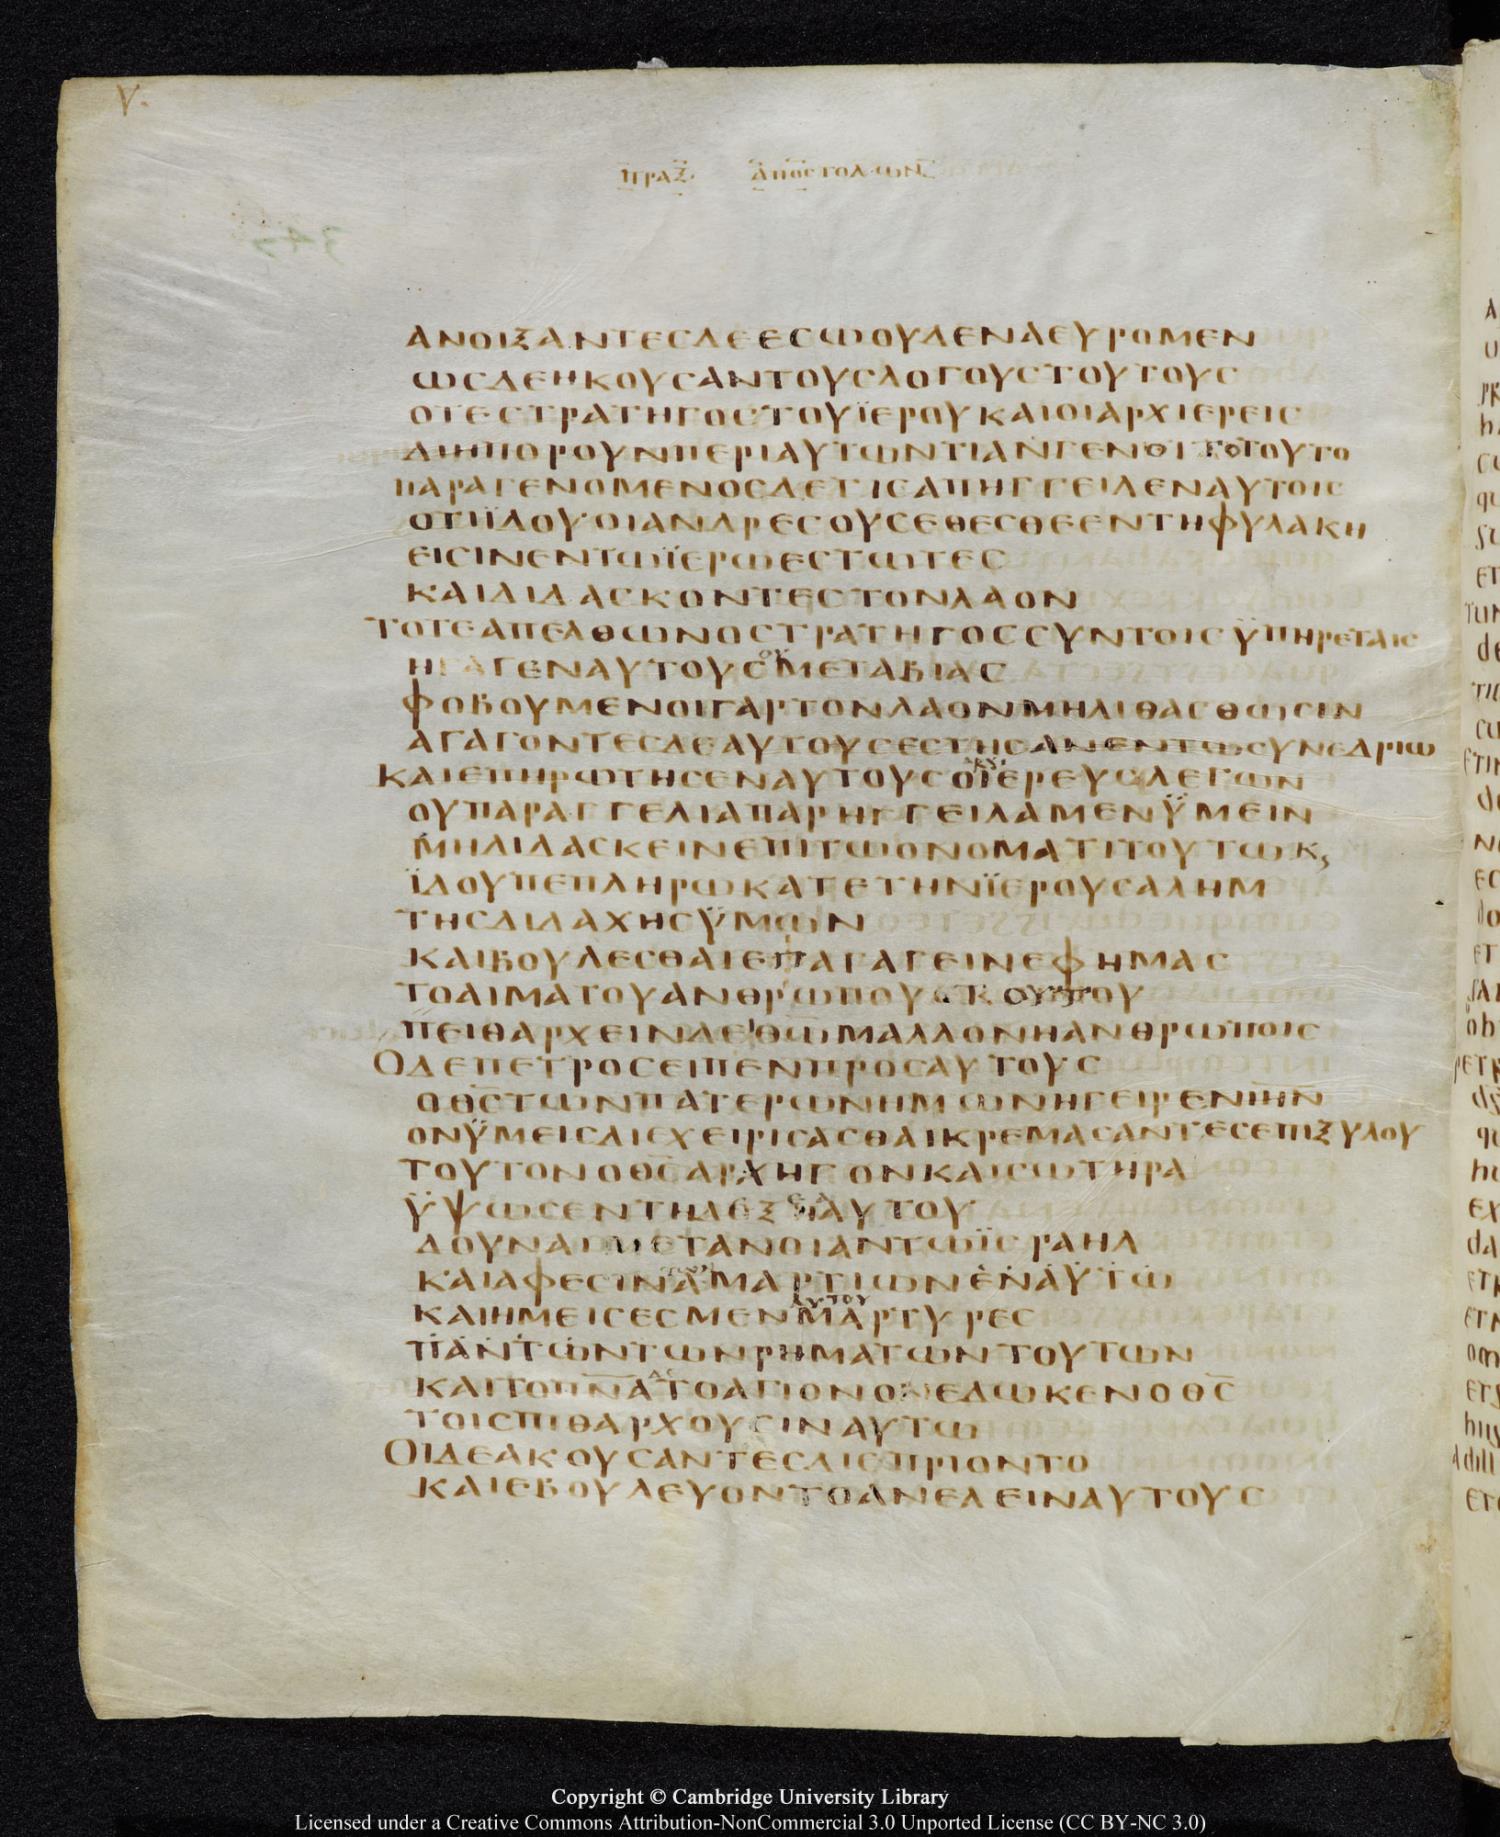 V.
ΠΡΑΞ. ΑΠΟΣΤΟΛΩΝ
ΑΝΟΙΞΑΝΤΕCΔΕΕCΩΟΥΔΕΝΑΕΥΡΟΜΕΝ
ΩCΔΕΗΚΟΥCΑΝΤΟΥCΛΟΓΟΥCΤΟΥΤΟΥC
ΟΤΕCΤΡΑΤΗΓΟCΤΟΥΪΕΡΟΥΚΑΙΟΙΑΡΧΙΕΡΕΙC
ΔΙΗΠΟΡΟΥΝΠΕΡΙΑΥΤΩΝΤΙΑΝΓΕΝΟΙΤΟΤΟΥΤΟ
ΠΑΡΑΓΕΝΟΜΕΝΟCΔΕΤΙCΑΠΗΓΓΕΙΛΕΝΑΥΤΟΙC
ΟΤΙΪΔΟΥΟΙΑΝΔΡΕCΟΥCΕΘΕCΘΕΕΝΤΗΦΥΛΑΚΗ
ΕΙCΙΝΕΝΤΩΪΕΡΩΕCΤΩΤΕC
ΚΑΙΔΙΔΑCΚΟΝΤΕCΤΟΝΛΑΟΝ
ΤΟΤΕΑΠΕΛΘΩΝΟCΤΡΑΤΗΓΟCCΥΝΤΟΙCΫΠΗΡΕΤΑΙC
ΗΓΑΓΕΝΑΥΤΟΥCΟΥΜΕΤΑΒΙΑC
ΦΟΒΟΥΜΕΝΟΙΓΑΡΤΟΝΛΑΟΝΜΗΛΙΘΑCΘΩCΙΝ
ΑΓΑΓΟΝΤΕCΔΕΑΥΤΟΥCΕCΤΗCΑΝΕΝΤΩCΥΝΕΔΡΙΩ
ΚΑΙΕΠΗΡΩΤΗCΕΝΑΥΤΟΥCΟΪΕΡΕΥCΛΕΓΩΝ
ΟΥΠΑΡΑΓΓΕΛΙΑΠΑΡΗΓΓΕΙΛΑΜΕΝΫΜΕΙΝ
ΜΗΔΙΔΑCΚΕΙΝΕΠΙΤΩΟΝΟΜΑΤΙΤΟΥΤΩΚ,
ΪΔΟΥΠΕΠΛΗΡΩΚΑΤΕΤΗΝΪΕΡΟΥCΑΛΗΜ
ΤΗCΔΙΔΑΧΗCΫΜΩΝ
ΚΑΙΒΟΥΛΕCΘΑΙΕΠΑΓΑΓΕΙΝΕΦΗΜΑC
ΤΟΑΙΜΑΤΟΥΑΝΘΡΩΠΟΥ ΤΟΥΤΟΥ
ΠΕΙΘΑΡΧΕΙΝΔΕΘΩΜΑΛΛΟΝΗΑΝΘΡΩΠΟΙC
ΟΔΕΠΕΤΡΟCΕΙΠΕΝΠΡΟCΑΥΤΟΥC
ΟΘCΤΩΝΠΑΤΕΡΩΝΗΜΩΝΗΓΕΙΡΕΝΙΗΝ
ΟΝΫΜΕΙCΔΙΕΧΕΙΡΙCΑCΘΑΙΚΡΕΜΑCΑΝΤΕCΕΠΙΞΥΛΟΥ
ΤΟΥΤΟΝΟΘCΑΡΧΗΓΟΝΚΑΙCΩΤΗΡΑ
ΫΨΩCΕΝΤΗΔΕΞΙΑΑΥΤΟΥ
ΔΟΥΝΑΙΜΕΤΑΝΟΙΑΝΤΩΪCΡΑΗΛ
ΚΑΙΑΦΕCΙΝΑΜΑΡΤΙΩΝΕΝΑΥΤΩ
ΚΑΙΗΜΕΙCΕCΜΕΝΑΥΤΟΥΜΑΡΤΥΡΕC
ΠΑΝΤΩΝΤΩΝΡΗΜΑΤΩΝΤΟΥΤΩΝ
ΚΑΙΤΟΠΝΑΔΕΤΟΑΓΙΟΝΟΝΕΔΩΚΕΝΟΘC
ΤΟΙCΠΙΘΑΡΧΟΥCΙΝΑΥΤΩ
ΟΙΔΕΑΚΟΥCΑΝΤΕCΔΙΕΠΡΙΟΝΤΟ
ΚΑΙΕΒΟΥΛΕΥΟΝΤΟΑΝΕΛΕΙΝΑΥΤΟΥC
Copyright © Cambridge University Library
Licensed under a Creative Commons Attribution-NonCommercial 3.0 Unported License (CC BY-NC 3.0)